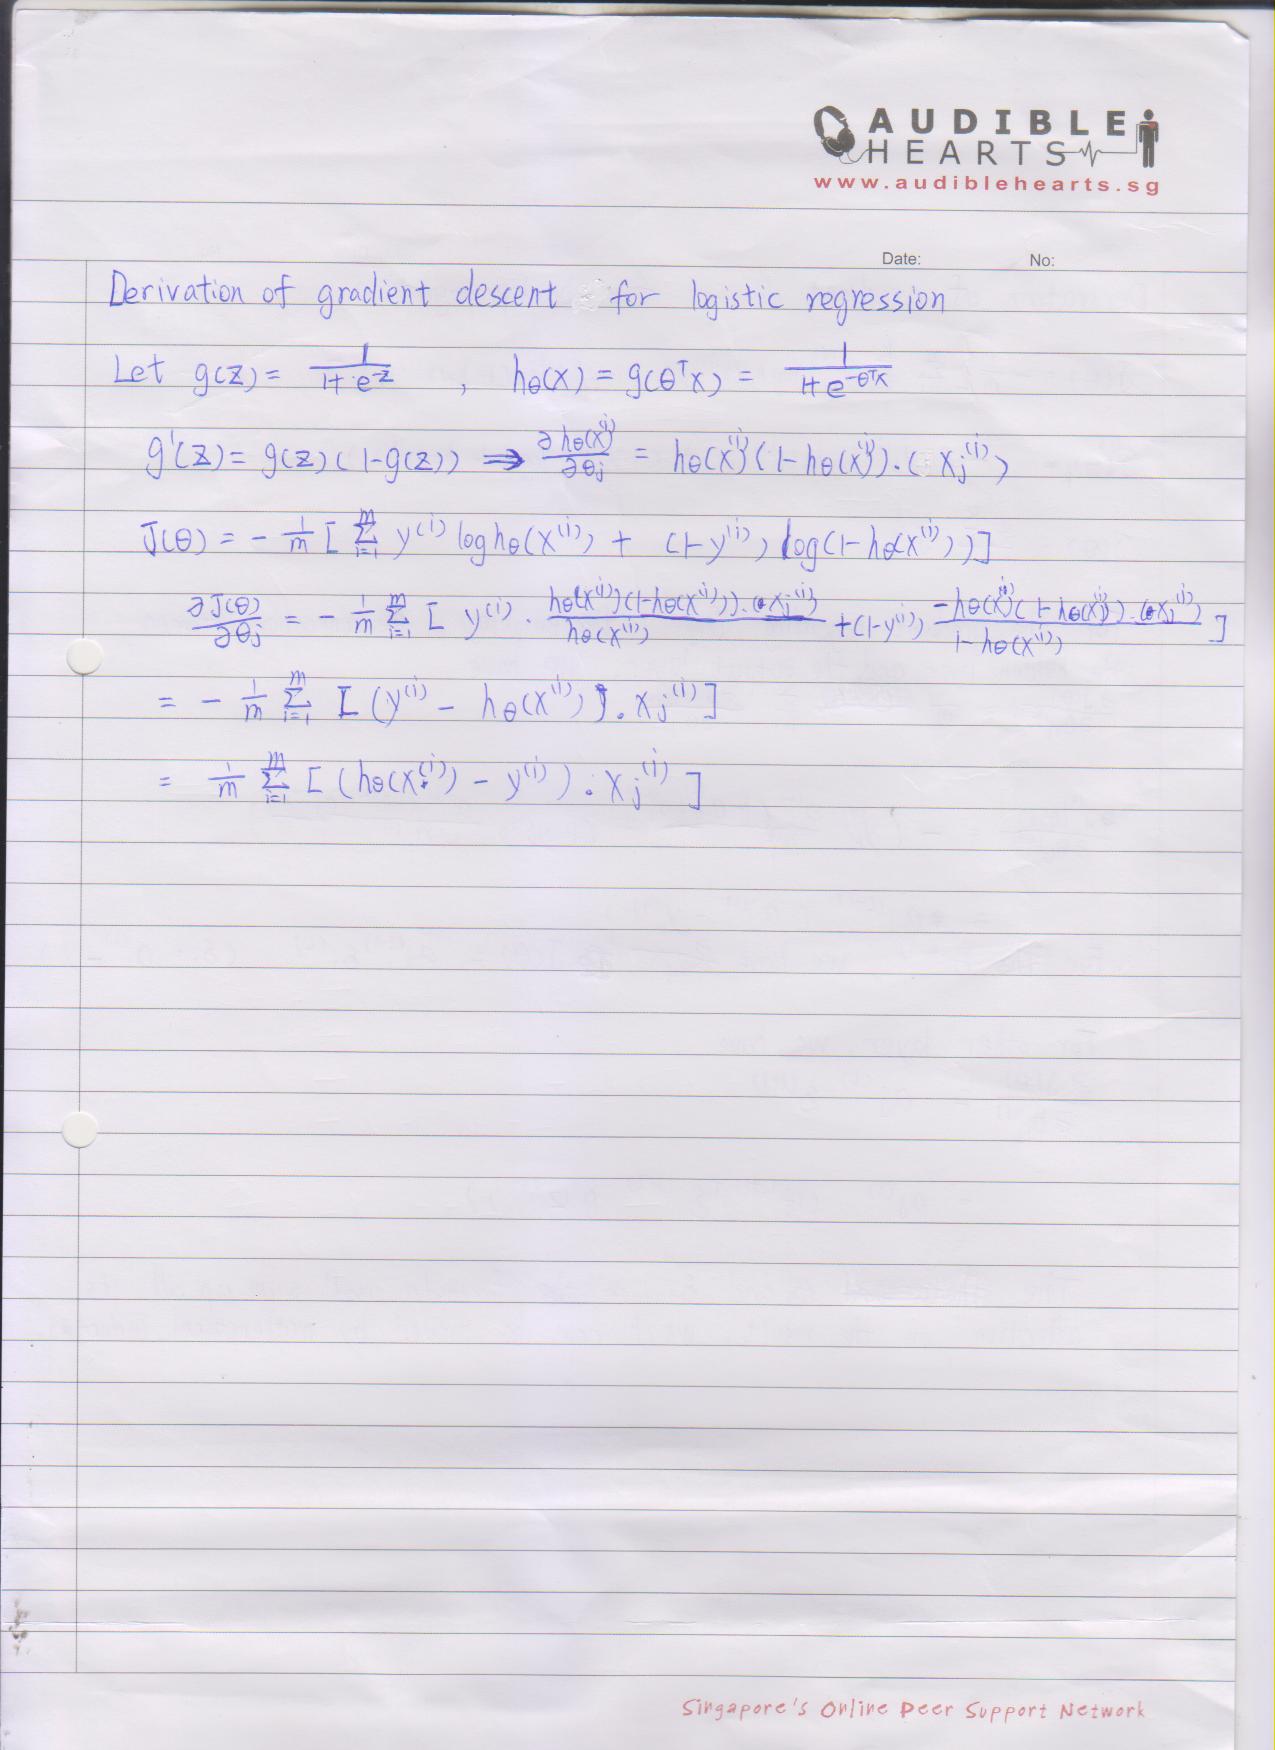 AUDIBLE
HEARTS
www.audiblehearts.sg
Date: No:
Derivation of gradient descent for logistic regression
Let g(z) = 1/(1+e^{-z}) , hθ(x) = g(θ^T x) = 1/(1+e^{-θ^T x})
g'(z) = g(z)(1-g(z)) ⇒ ∂hθ(x^{(i)})/∂θj = hθ(x^{(i)})(1-hθ(x^{(i)})).(xj^{(i)})
J(θ) = - 1/m [ Σ_{i=1}^{m} y^{(i)} log hθ(x^{(i)}) + (1-y^{(i)}) log(1-hθ(x^{(i)}))]
∂J(θ)/∂θj = - 1/m Σ_{i=1}^{m} [ y^{(i)} . hθ(x^{(i)})(1-hθ(x^{(i)})).xj^{(i)}/hθ(x^{(i)}) + (1-y^{(i)}) -hθ(x^{(i)})(1-hθ(x^{(i)})).xj^{(i)}/1-hθ(x^{(i)}) ]
= - 1/m Σ_{i=1}^{m} [ (y^{(i)} - hθ(x^{(i)})).xj^{(i)} ]
= 1/m Σ_{i=1}^{m} [ (hθ(x^{(i)}) - y^{(i)}).xj^{(i)} ]
Singapore's Online Peer Support Network